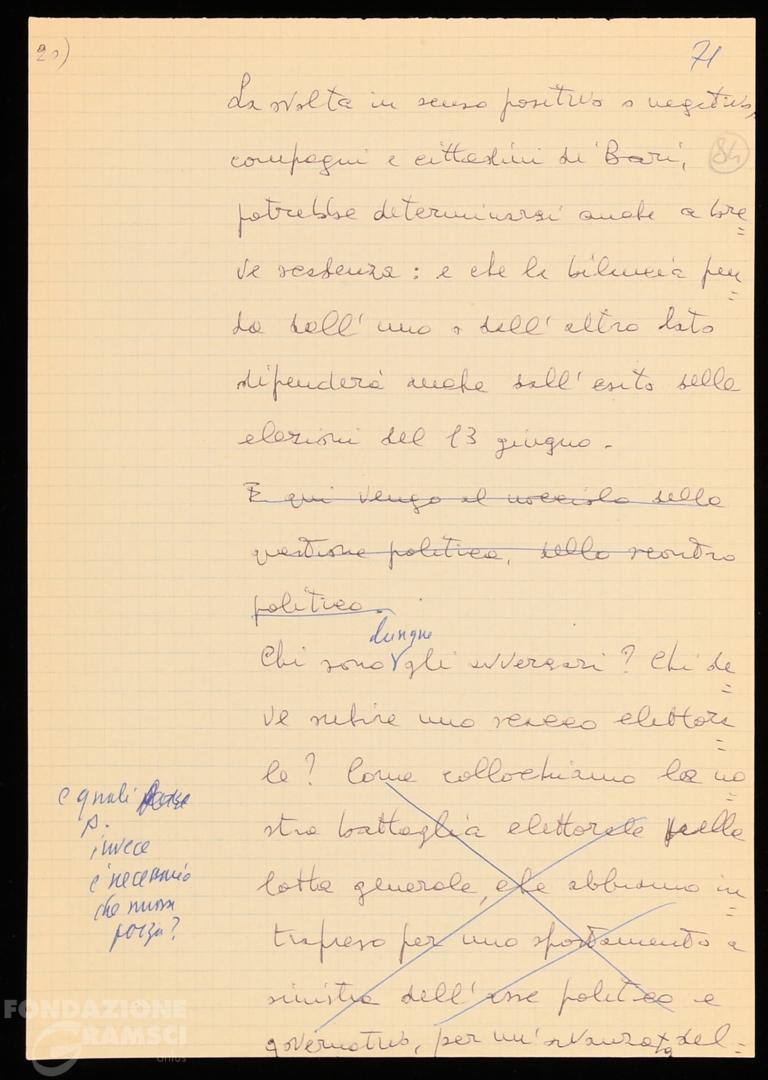 20)
71
La svolta in senso positivo o negativo,
compagni e cittadini di Bari,
84
potrebbe determinarsi anche a bre=
ve scadenza: e che la bilancia pen=
da dall'uno o dell'altro lato
dipenderà anche dall'esito delle
elezioni del 13 giugno -
E qui vengo al nocciolo della
questione politica, dello scontro
politico.
dunque
Chi sono gli avversari? Chi de=
ve subire uno scacco elettora=
le? Come collochiamo la no=
stra battaglia elettorale nella
lotta generale, che abbiamo in=
trapreso per uno spostamento a
sinistra dell'asse politico e
governativo, per un'avanzata del=
e quali
p.
invece
è necessario
che nuova
forza?
FONDAZIONE
GRAMSCI
onlus